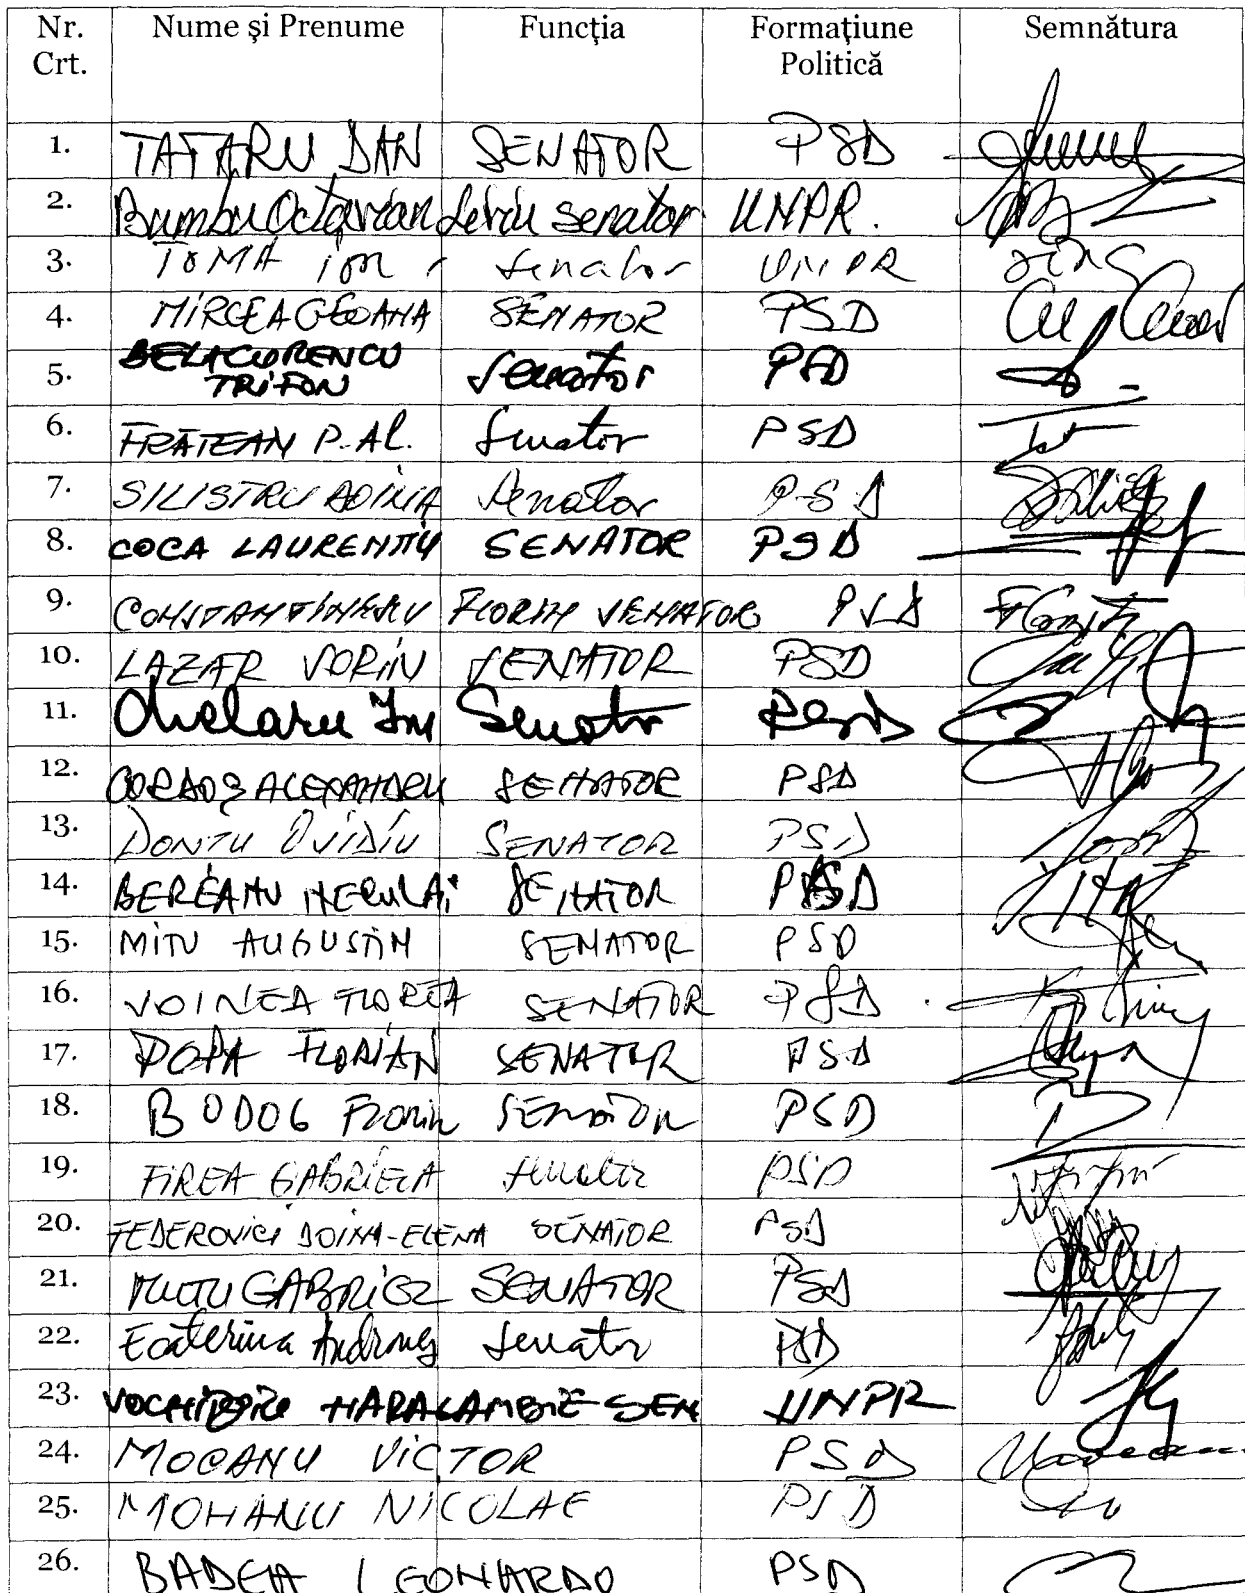 Nr. Crt. Nume și Prenume Funcția Formațiune Politică Semnătura
1. TATARU DAN SENATOR PSD
2. Bumbu Octavian Liviu senator UNPR.
3. TOMA ION senator UNPR
4. MIRCEA GEOANA SENATOR PSD
5. BELACURENCU TRIFON Senator PSD
6. FRĂTEAN P. AL. Senator PSD
7. SILISTRU DOINA Senator PSD
8. COCA LAURENȚIU SENATOR PSD
9. CONSTANTINESCU FLORIN SENATOR PSD
10. LAZAR SORIN SENATOR PSD
11. Chelaru Ion Senator PSD
12. CORDOȘ ALEXANDRU SENATOR PSD
13. DONTU OVIDIU SENATOR PSD
14. BEREANU NECULAI SENATOR PSD
15. MITU AUGUSTIN SENATOR PSD
16. VOINEA FLOREA SENATOR PSD
17. POPA FLORIAN SENATOR PSD
18. BODOG Florin SENATOR PSD
19. FIREA GABRIELA senator PSD
20. FEDEROVICI DOINA-ELENA SENATOR PSD
21. MUTU GABRIEL SENATOR PSD
22. Ecaterina Andronescu Senator PSD
23. HARALAMBIE SEN UNPR
24. MOCANU VICTOR PSD
25. MOHANU NICOLAE PSD
26. BADEA LEONARDO PSD